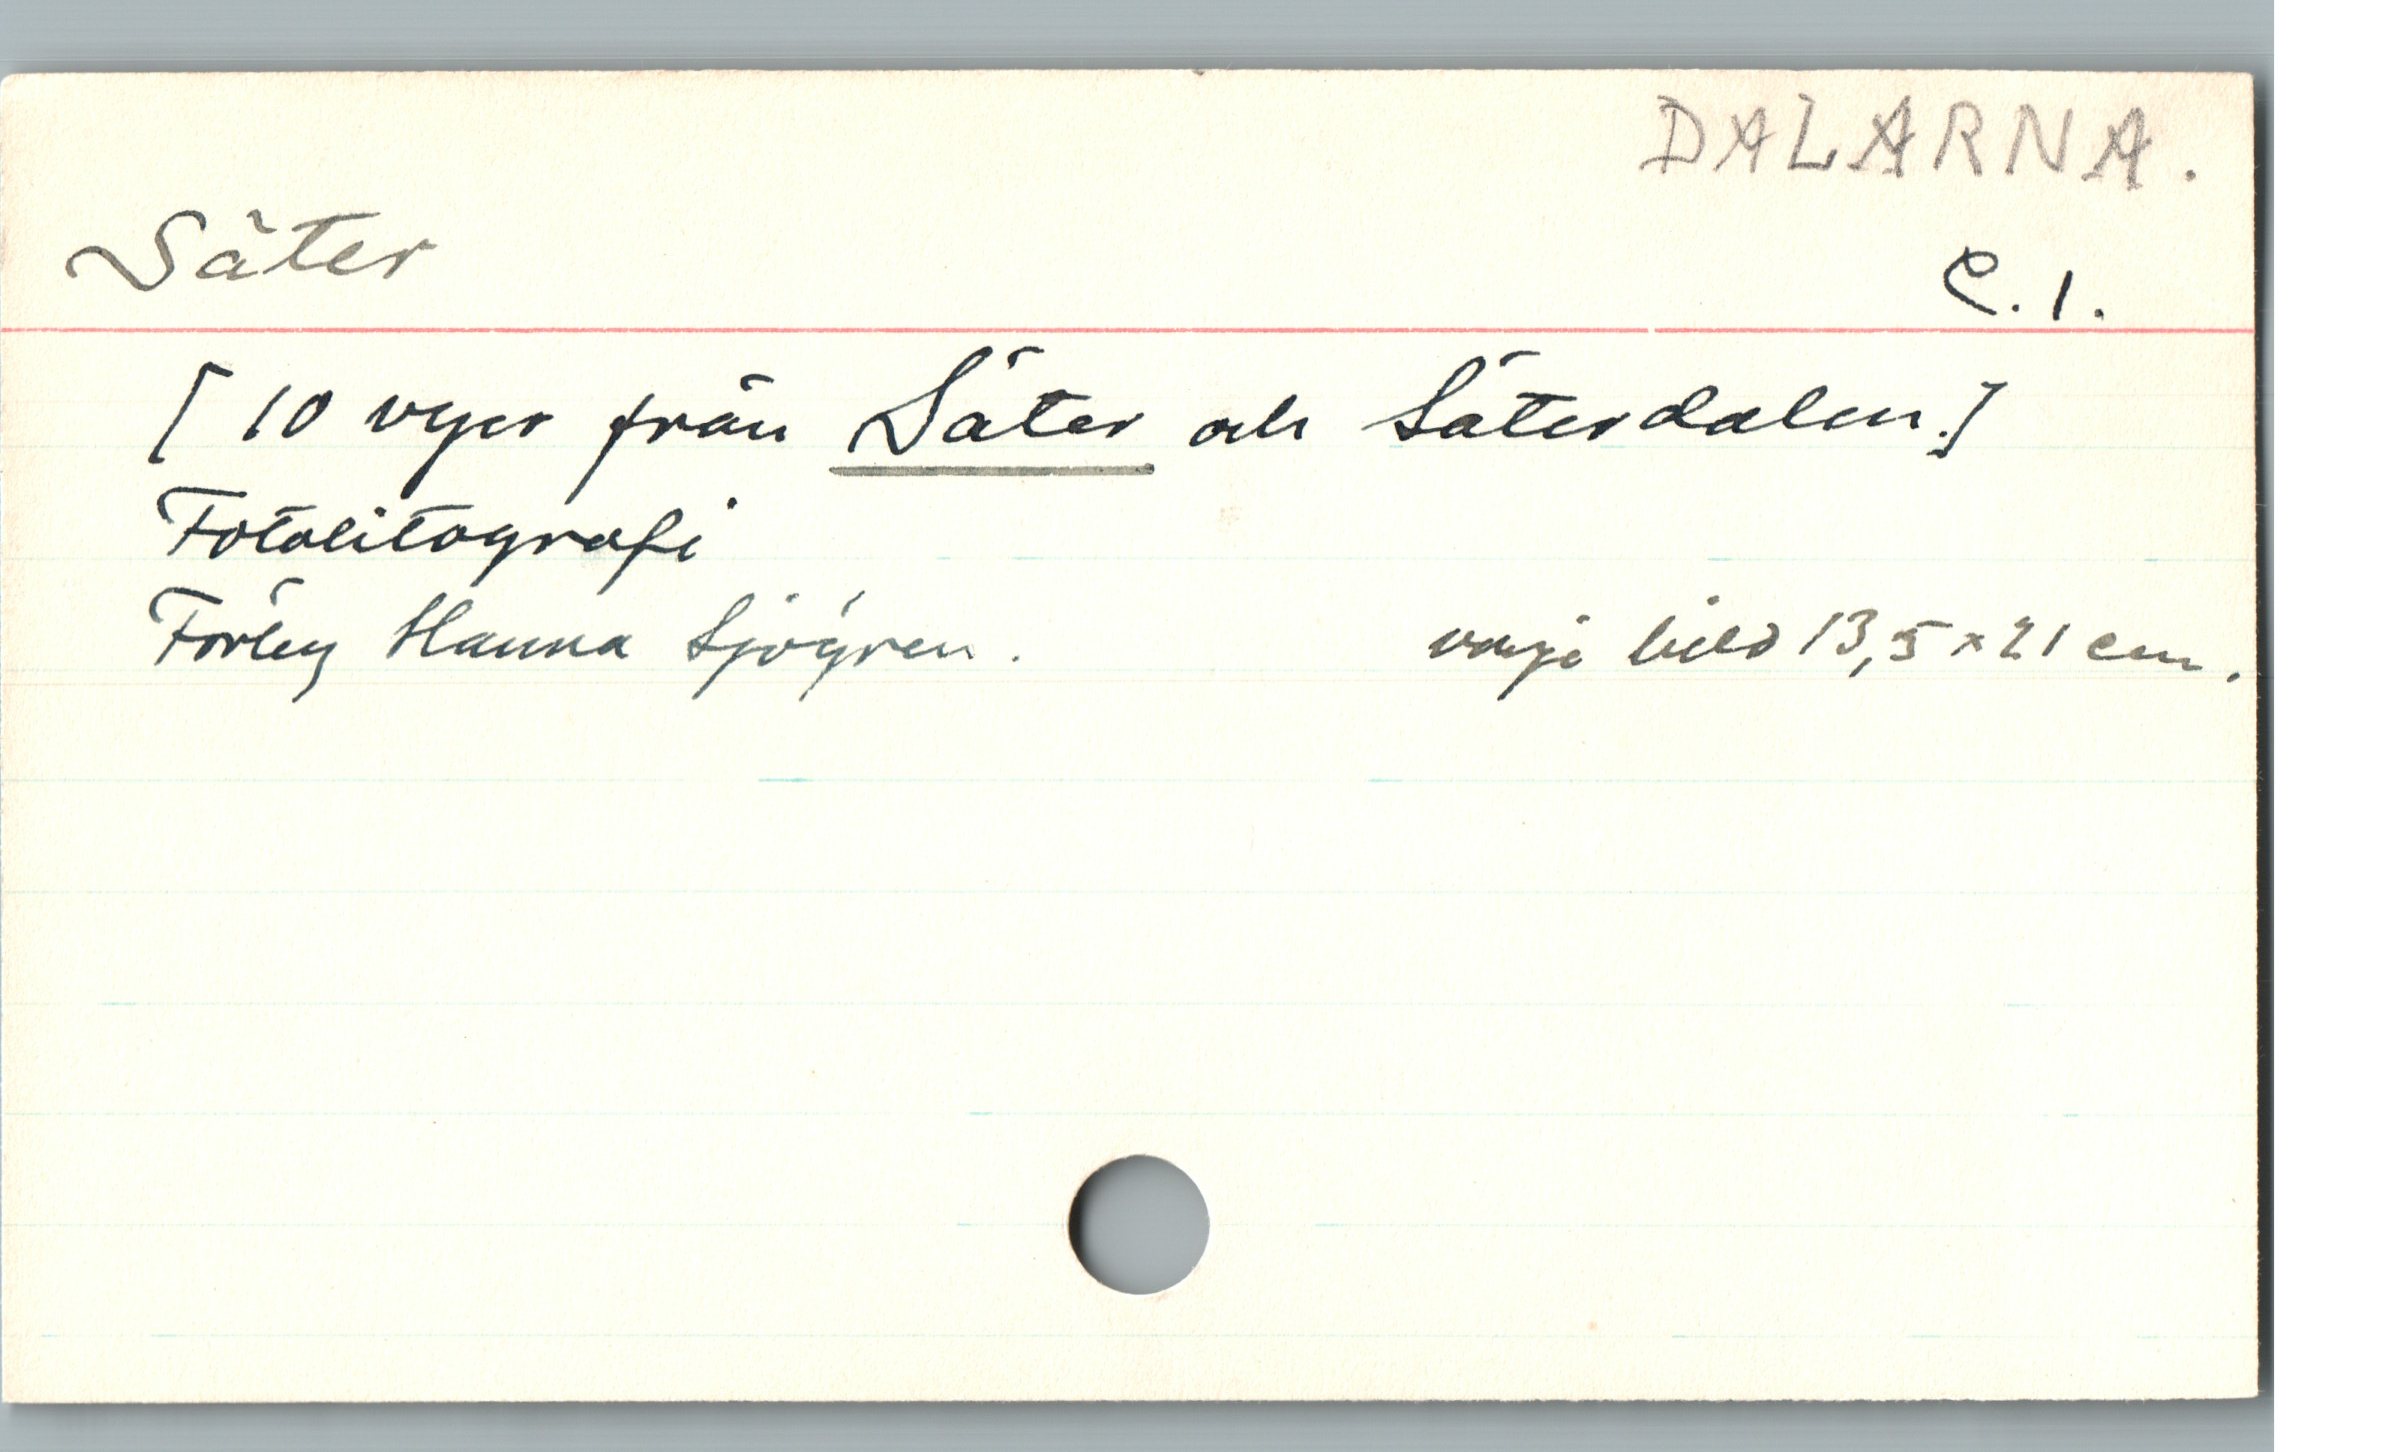 DALARNA.
Säter
C. 1.
[ 10 vyer från Säter och Säterdalen.]
Fotolitografi
Förlag Hanna Sjögren. varje bild 13,5 x 21 cm.